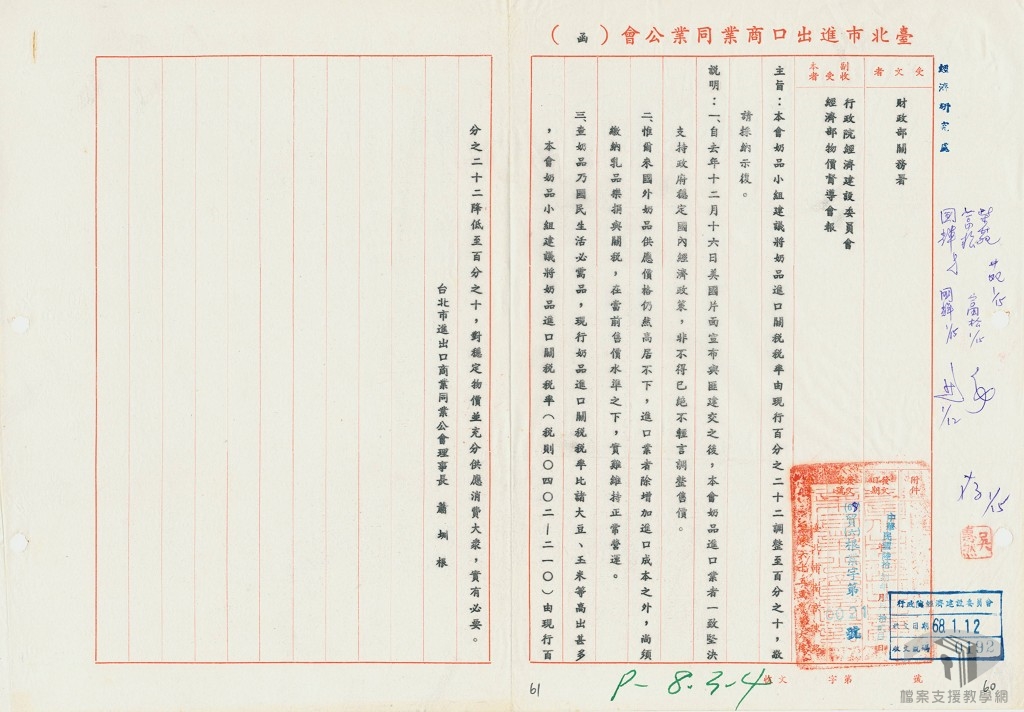 臺北市進出口商業同業公會（函）
受文者
財政部關務署
副本收受者
行政院經濟建設委員會
經濟部物價督導會報
附件
主旨：本會奶品小組建議將奶品進口關稅稅率由現行百分之二十二調整至百分之十，敬
請採納示復。
說明：一、自去年十二月十六日美國片面宣布與匪建交之後，本會奶品進口業者一致堅決
支持政府穩定國內經濟政策，非不得已絕不輕言調整售價。
二、惟爾來國外奶品供應價格仍然高居不下，進口業者除增加進口成本之外，尚須
繳納乳品樂捐與關稅，在當前售價水準之下，實難維持正常營運。
三、查奶品乃國民生活必需品，現行奶品進口關稅稅率比諸大豆、玉米等高出甚多
，本會奶品小組建議將奶品進口關稅稅率（稅則〇四〇二—二一〇）由現行百
分之二十二降低至百分之十，對穩定物價並充分供應消費大衆，實有必要。
台北市進出口商業同業公會理事長 蕭圳根
經濟研究處
1/15
1/12
1/15
行政院經濟建設委員會
收文日期 68.1.12
收文號碼 0192
收文 字第 號
P-8.3.4
61
60
檔案支援教學網